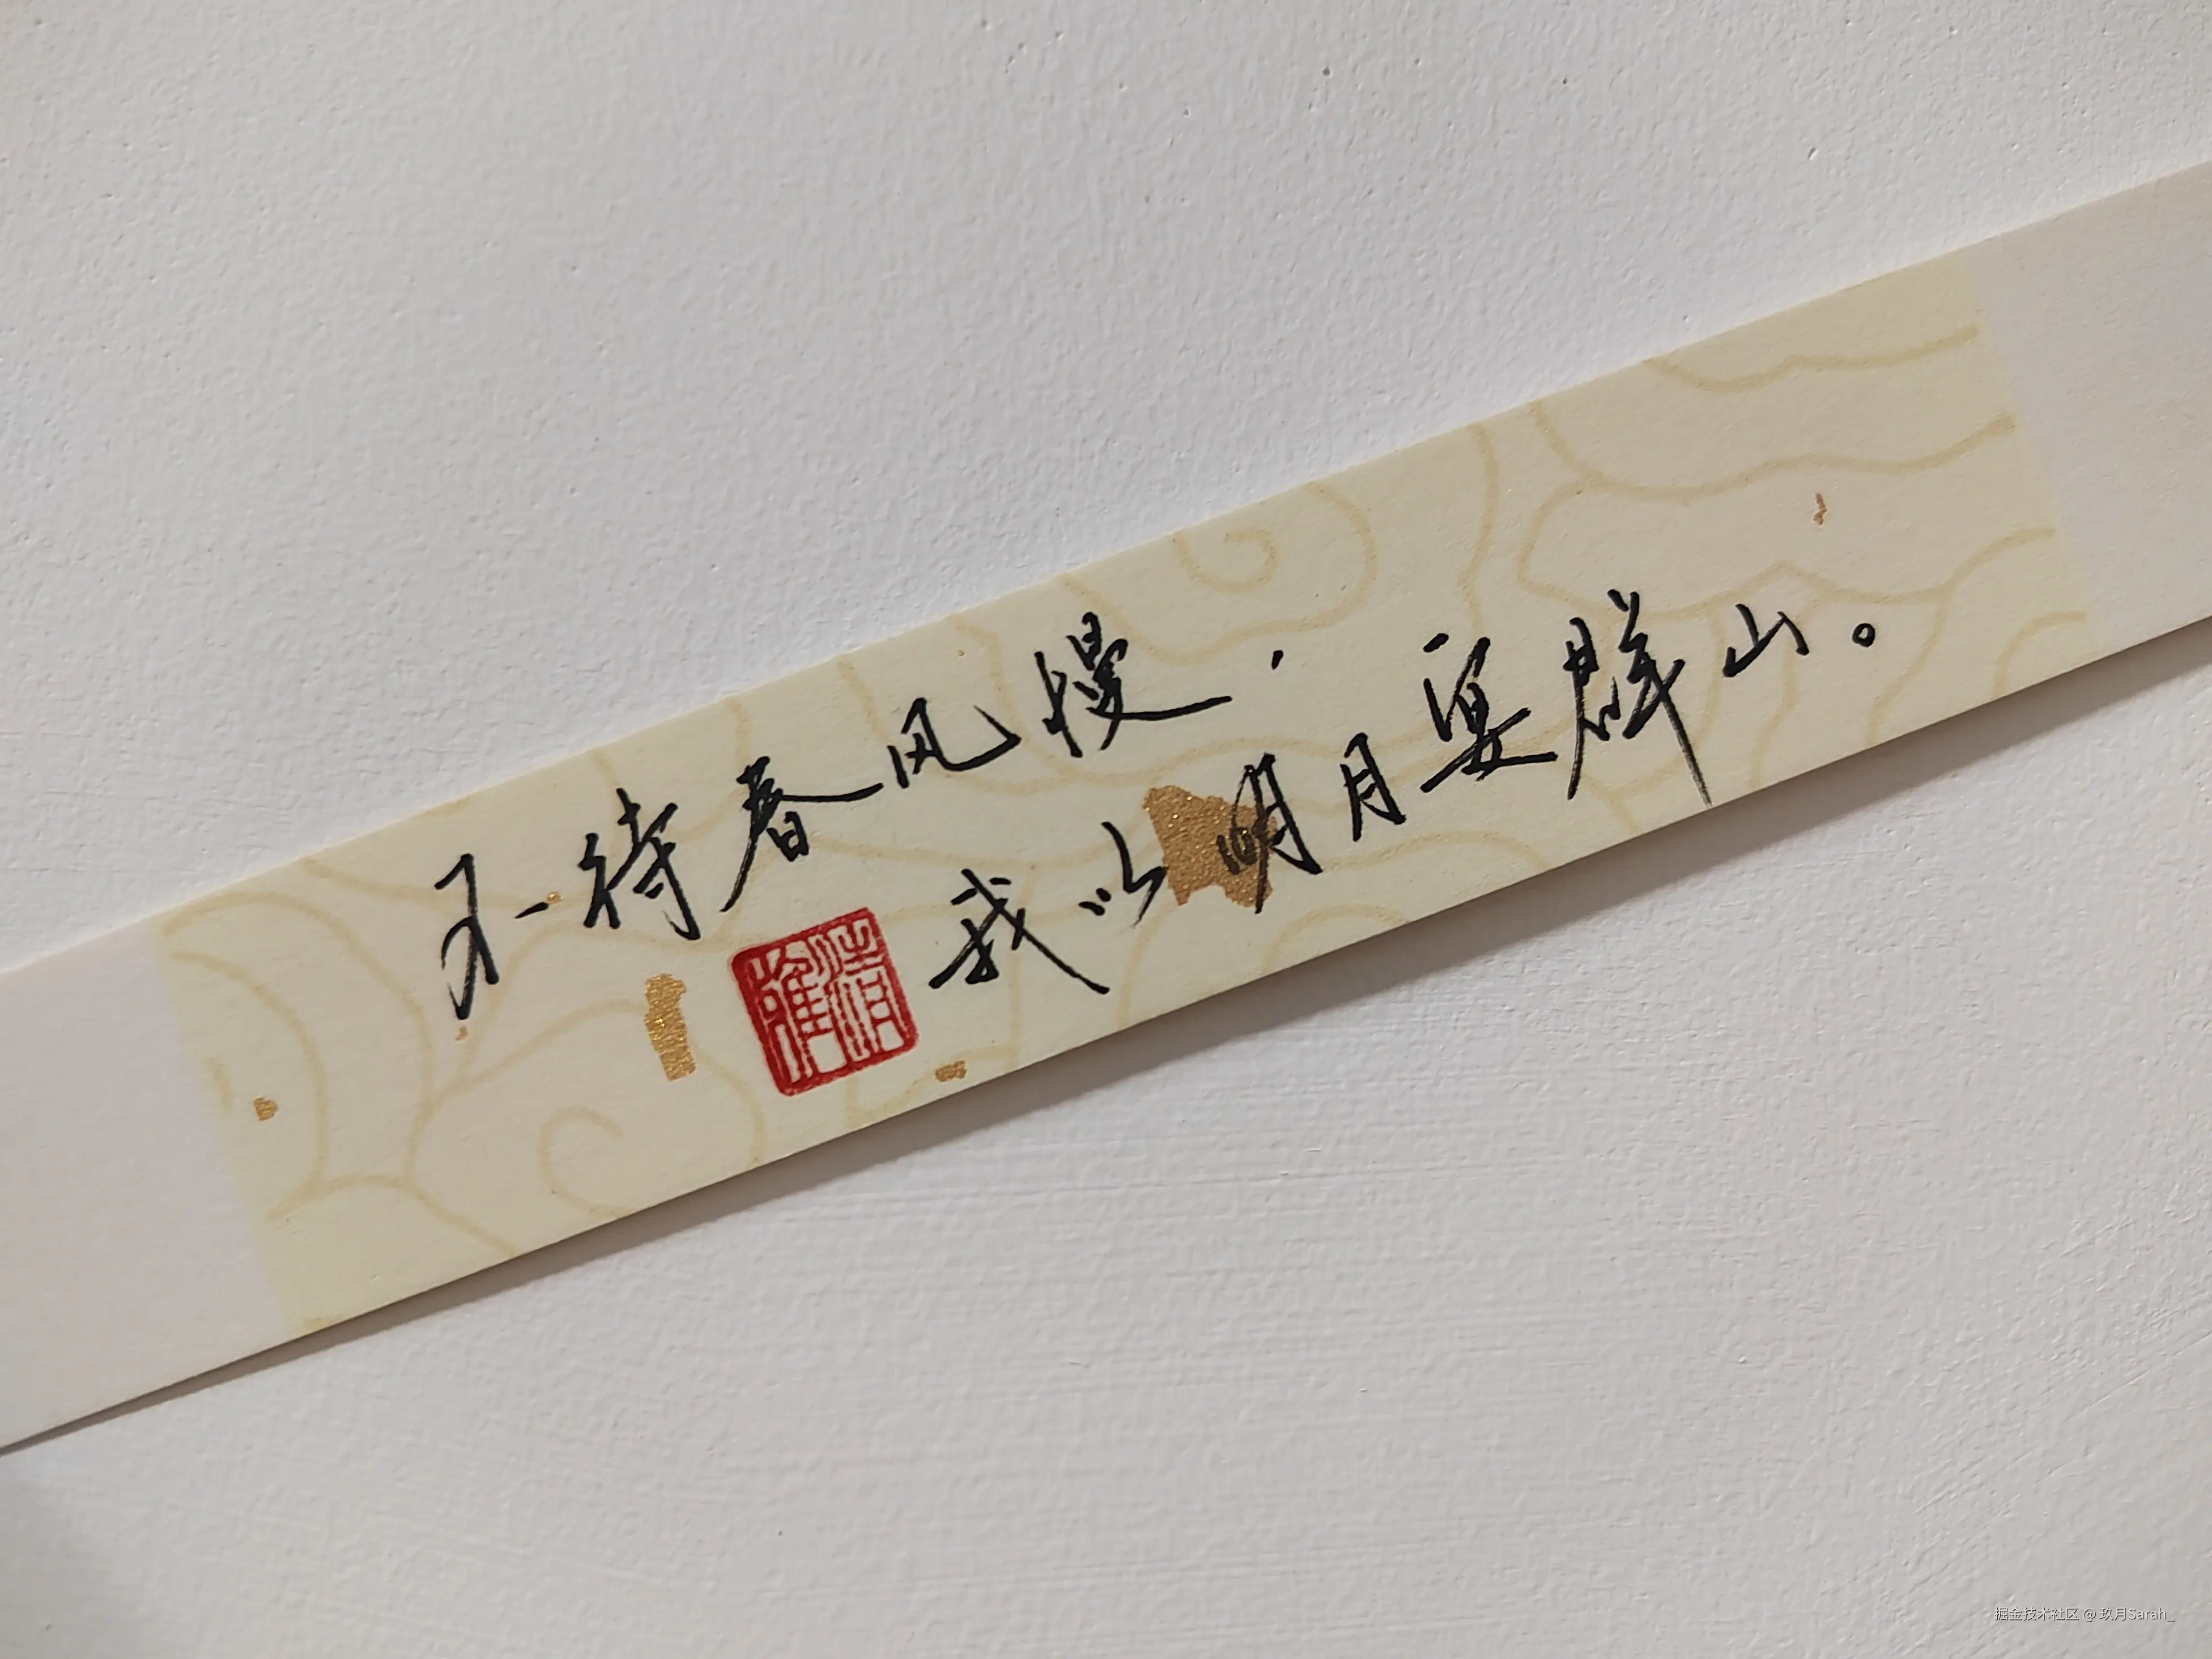 不待春风慢，
我以明月宴群山。
掘金技术社区 @ 玖月Sarah_